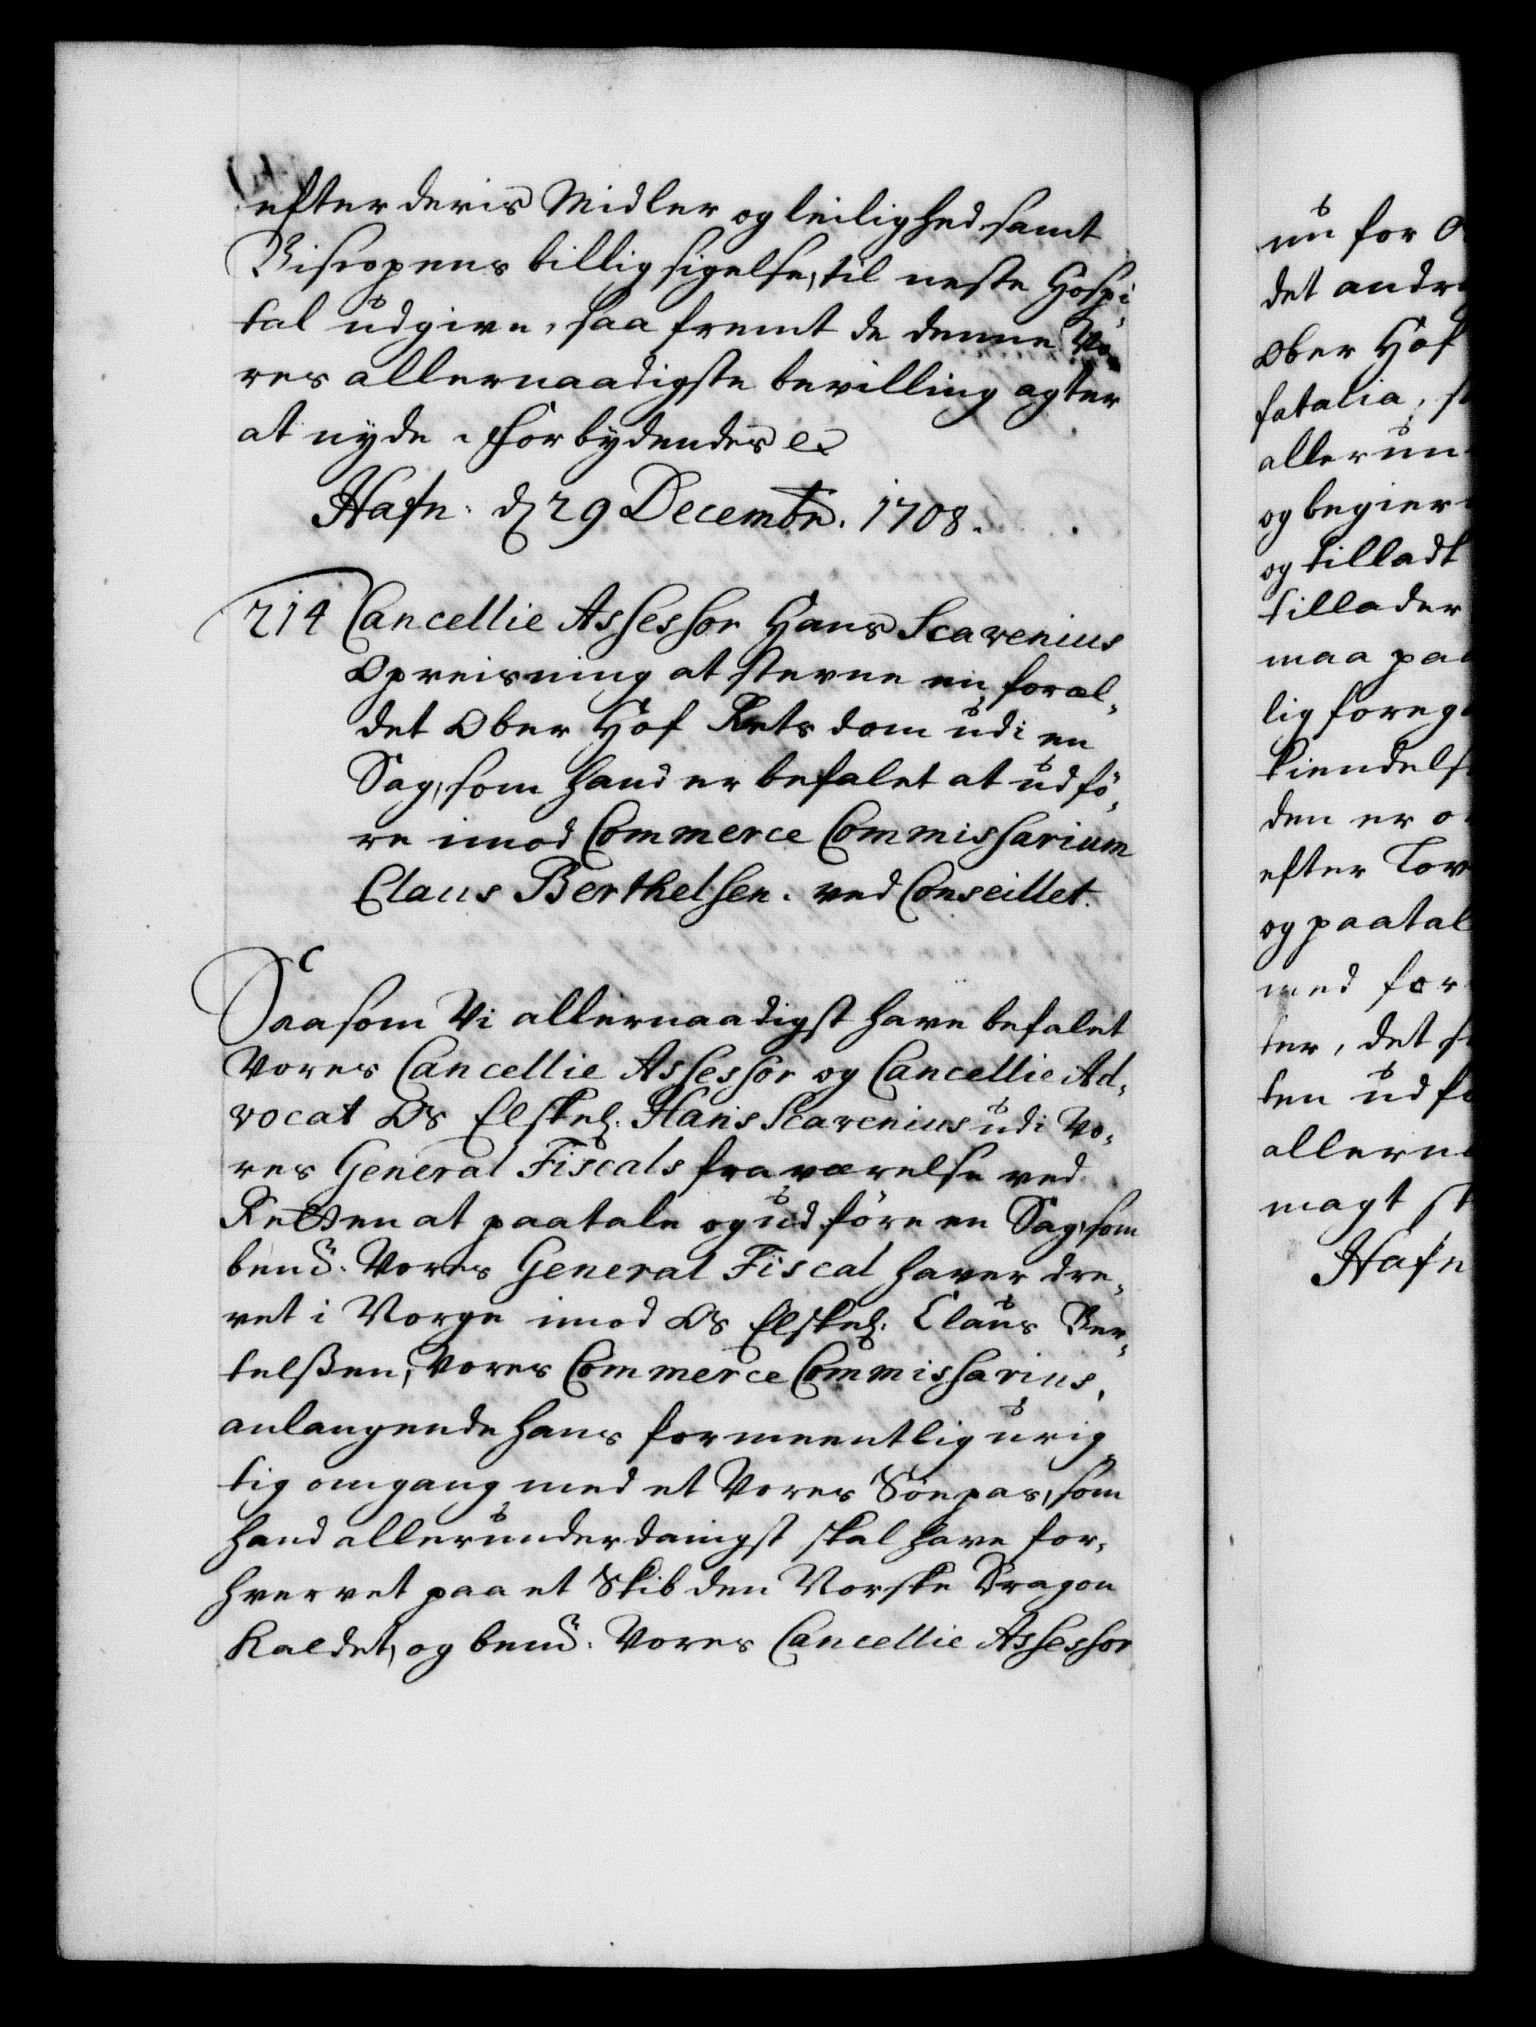 efter deris Midler og leilighed samt
Biscopens billig sigelse, til neste Hospi¬
tal udgive, saa fremt de denne Vo¬
res allernaadigste bevilling agter
at nyde. Forbydendes &c
Hafn. d 29 Decembr. 1708.
214 Cancellie Assessor Hans Scavenius
Opreisning at stevne en foræl¬
det Ober Hof Rets dom udi en
Sag, som hand er befalet at udfö¬
re imod Commerce Commissarium
Claus Berthelsen. ved Conseillet.
Saasom Vi allernaadigst have befalet
Vores Cancellie Assessor og Cancellie Ad¬
vocat Os Elskel. Hans Scavenius udi Vo¬
res General Fiscals fraværelse ved
Retten at paatale og udföre en Sag, som
bemt. Vores General Fiscal haver dre¬
vet i Norge imod Os Elskel. Claus Ber¬
telßen, Vores Commerce Commissarius,
anlangende hans formeentlig urig¬
tig omgang med et Vores Söepas, som
hand allerunderdanigst skal have for¬
hvervet paa et Skib den Norske Dragon
kaldet, og bemt. Vores Cancellie Assessor
nu for O
det andr
Ober Hof
fatalia, s
allerun
og begier
og tilladt
tillader
maa paa
lig foreg
kiendels
den er o
efter Lov
og paatal
med for
ter, det s
ten udfö
allern
magt st
Hafn